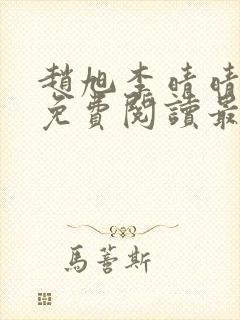 趙旭李晴晴
免費閱讀最
馬薈斯